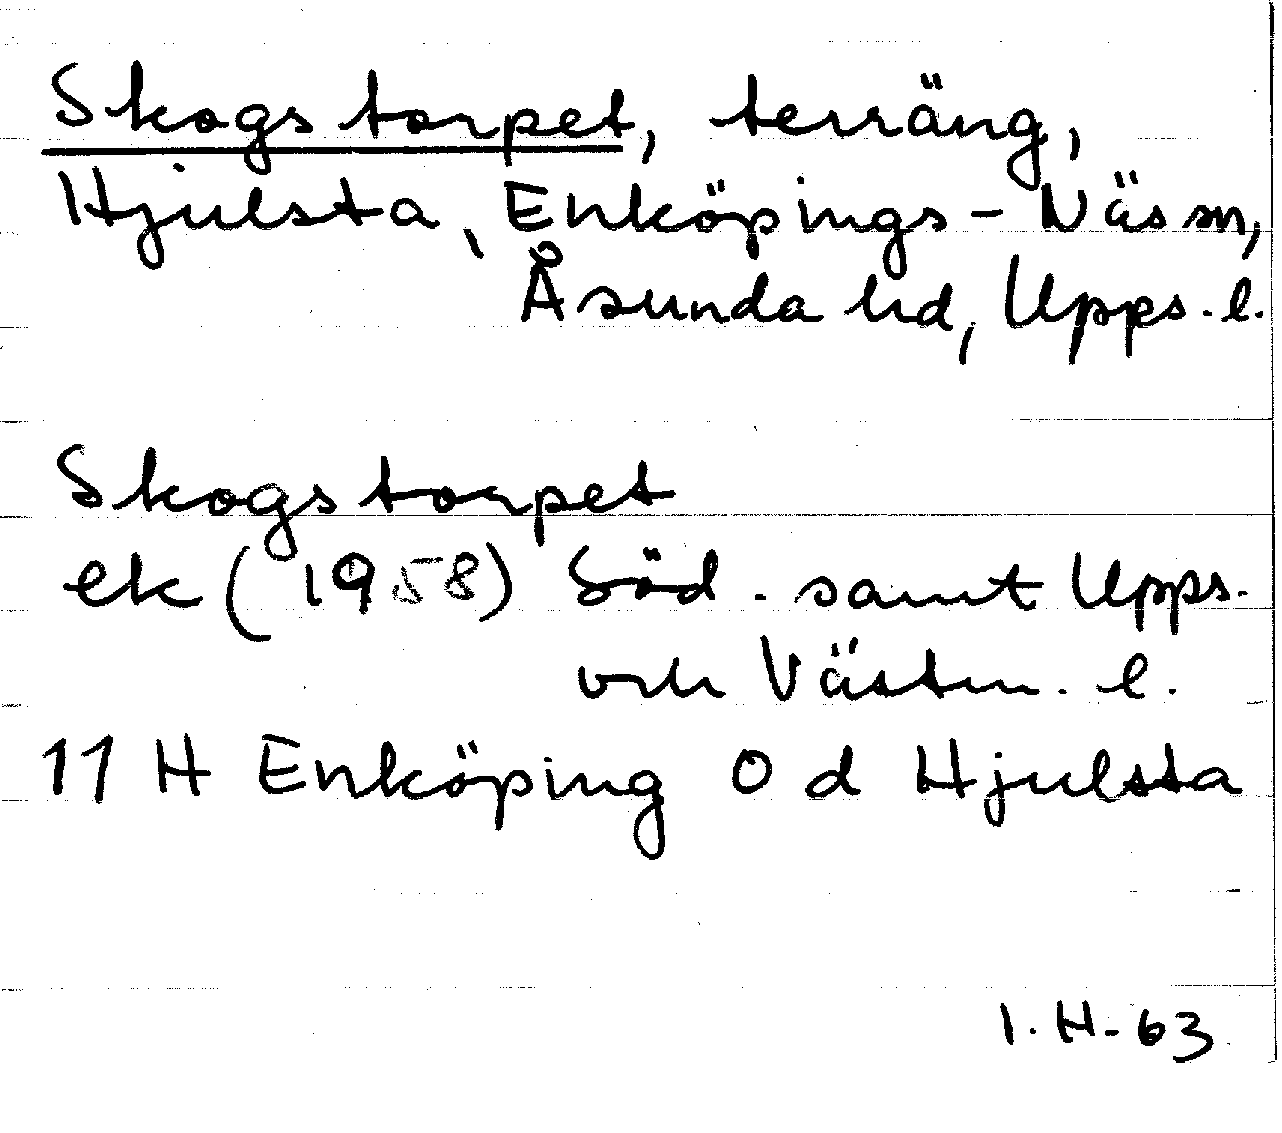 Skogstorpet, terräng,
Hjulsta, Enköpings-Näs sn,
Åsunda hd, Upps. l.
Skogstorpet
ek (1958) Söd. samt Upps.
och Västm. l.
11 H Enköping 0 d Hjulsta
I. H-63